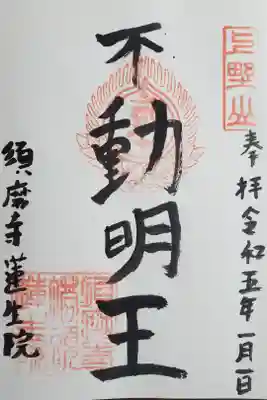 奉拝 令和五年一月一日
不動明王
須磨寺 蓮生院